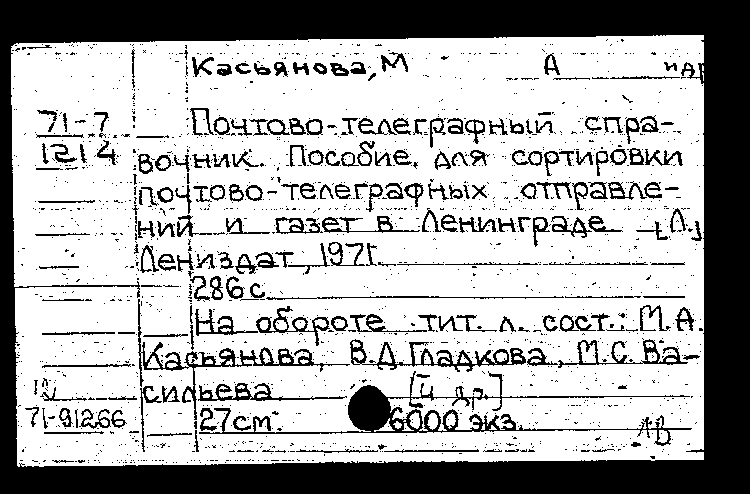 Касьянова, М А и др
71-7 Почтово-телеграфный спра-
1214 вочник. Пособие для сортировки
почтово-телеграфных отправле-
ний и газет в Ленинграде [Л.]
Лениздат, 1971.
286 с.
На обороте тит. л. сост.: М.А.
Касьянова, В.Д. Гладкова, М.С. Ва-
сильева [и др.]
71-91266 27 см. 6000 экз.